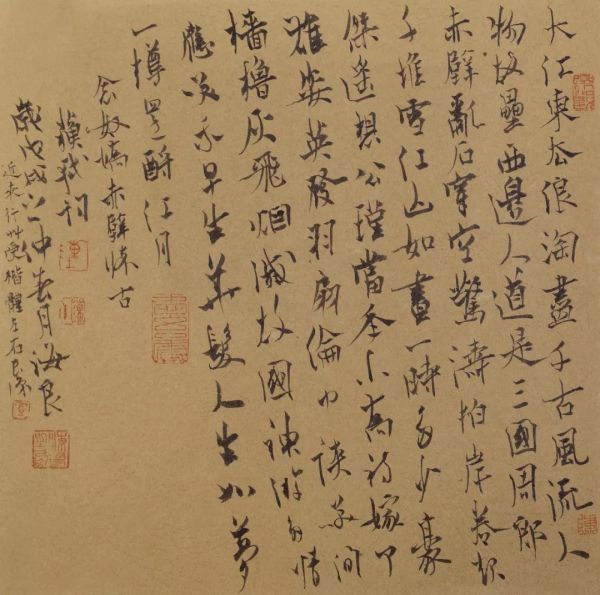 大江東去浪淘盡千古風流人
物故壘西邊人道是三國周郎
赤壁亂石穿空驚濤拍岸卷起
千堆雪江山如畫一時多少豪
傑遙想公瑾當年小喬初嫁了
雄姿英發羽扇倫巾談笑間
檣櫓灰飛烟滅故國神游多情
應笑我早生華髮人生如夢
一樽還酹江月
念奴嬌赤壁怀古
蘇軾詞
歲戊戌之仲春月海良
近來行艸受楷體左右